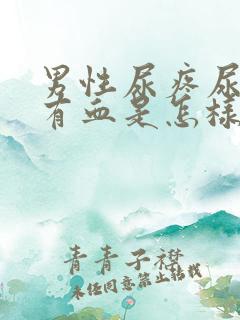 男性尿疼尿
有血是怎样
青青子襟
未经同意禁止转载